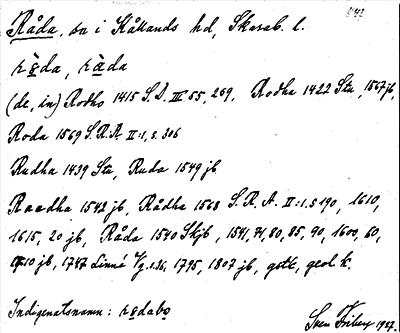 Råda, sn i Kållands hd, Skarab. l.
(de, in) Rodho 1415 S.D. III 55, 269, Rodha 1422 Sta, 1567 jb,
Roda 1569 S.R.A. II:1, s. 306
Rudha 1439 Sta, Ruda 1549 jb
Raadha 1542 jb, Rådha 1568 S.R.A. II:1. s 190, 1610,
1615, 20 jb, Råda 1540 Skjb, 1541, 71, 80, 85, 90, 1600, 60,
10 jb, 1747 Linné Vg. 1795, 1807 jb, gstk, geol. k.
Indigenatsnamn:
Sven Friberg 1927.